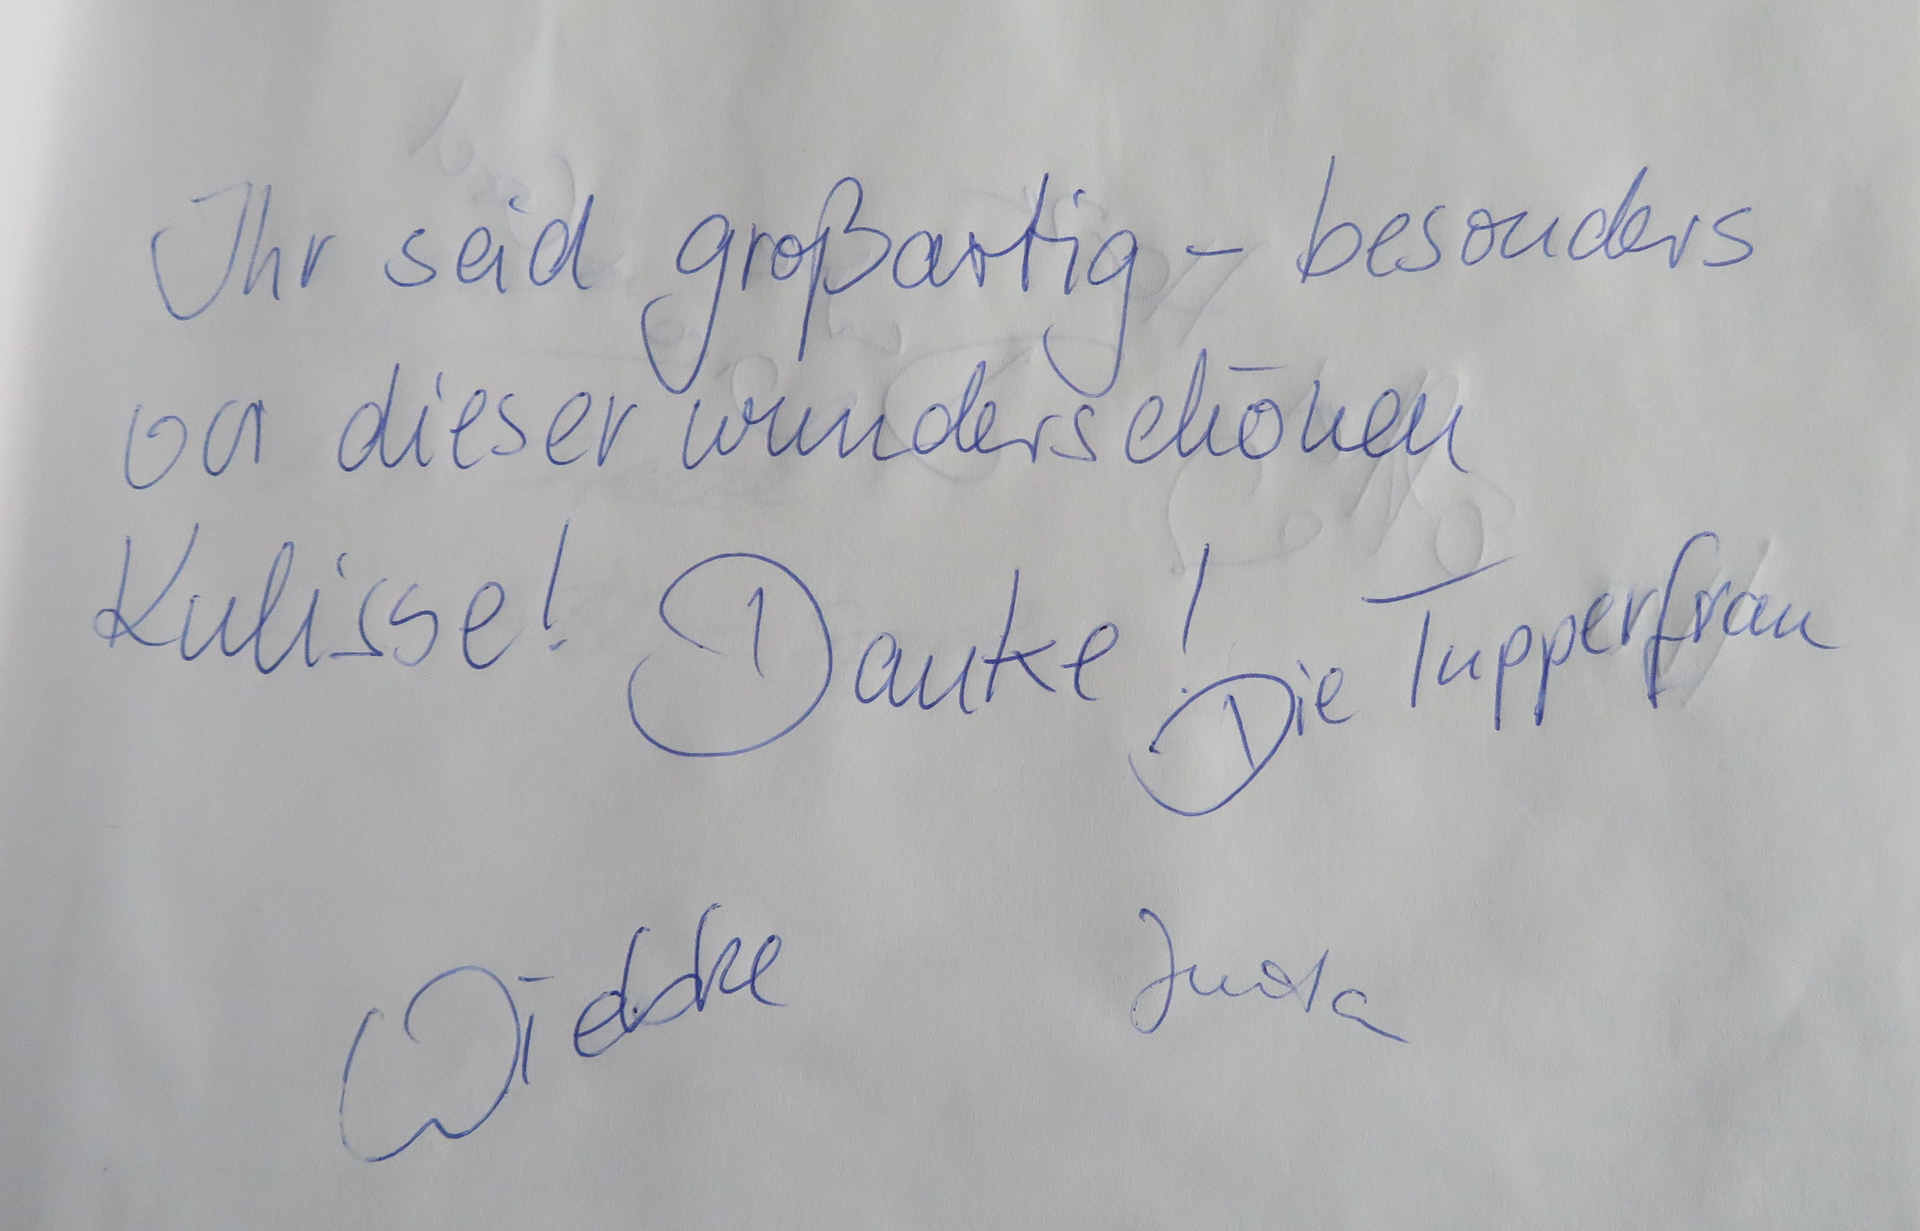 Ihr seid großartig - besonders
vor dieser wunderschönen
Kulisse! Danke! Die Tupperfrau
Wiebke